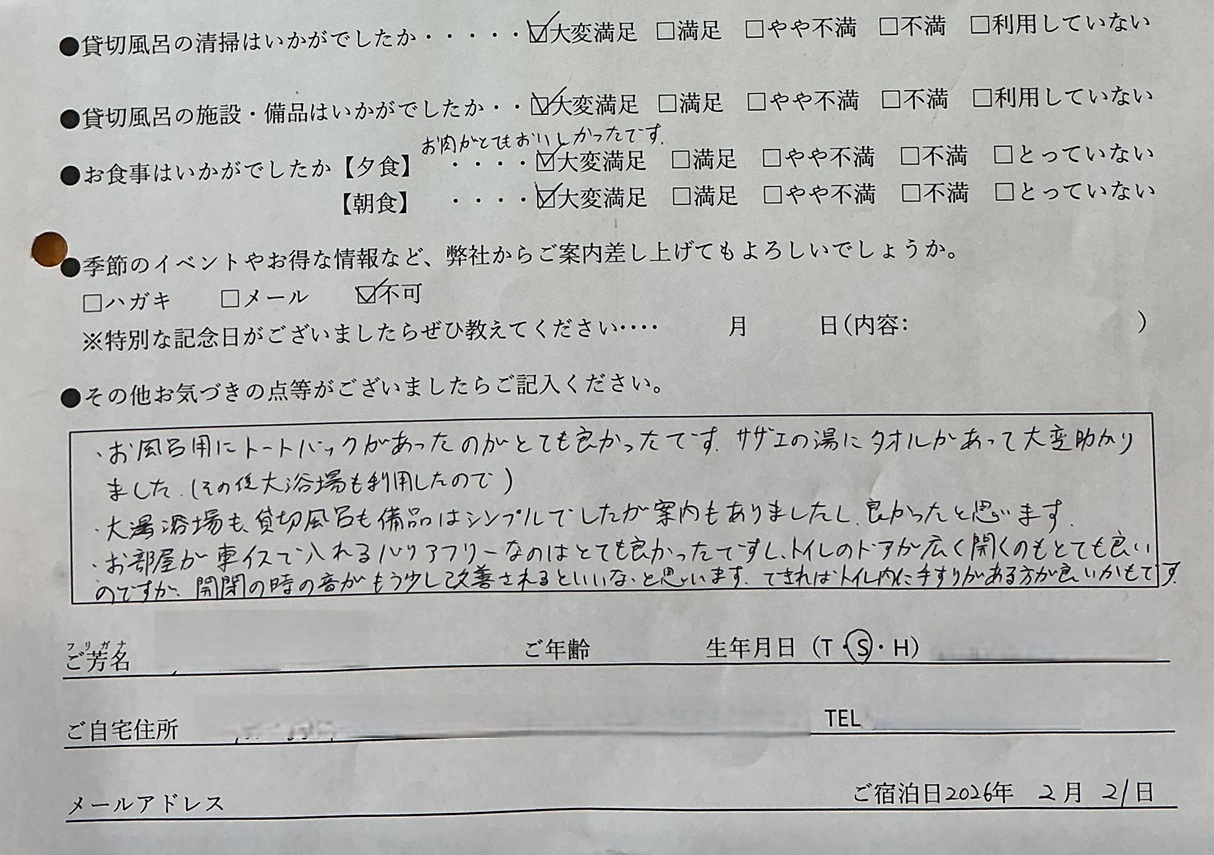 ●貸切風呂の清掃はいかがでしたか・・・・・☑大変満足 □満足 □やや不満 □不満 □利用していない
●貸切風呂の施設・備品はいかがでしたか・・☑大変満足 □満足 □やや不満 □不満 □利用していない
お肉がとてもおいしかったです.
●お食事はいかがでしたか【夕食】 ・・・・☑大変満足 □満足 □やや不満 □不満 □とっていない
【朝食】 ・・・・☑大変満足 □満足 □やや不満 □不満 □とっていない
●季節のイベントやお得な情報など、弊社からご案内差し上げてもよろしいでしょうか。
□ハガキ □メール ☑不可
※特別な記念日がございましたらぜひ教えてください‥‥ 月 日(内容: )
●その他お気づきの点等がございましたらご記入ください。
・お風呂用にトートバックがあったのがとても良かったです. サザエの湯にタオルがあって大変助かり
ました.(その後大浴場も利用したので)
・大浴場も、貸切風呂も備品はシンプルでしたが案内もありましたし、良かったと思います.
・お部屋が車イスで入れるバリアフリーなのはとても良かったですし、トイレのドアが広く開くのもとても良い
のですが、開閉の時の音がもう少し改善されるといいな、と思います. できればトイレ内に手すりがある方が良いかもです.
フリガナ
ご芳名 ご年齢 生年月日(T・S・H)
ご自宅住所 TEL
メールアドレス ご宿泊日2026年 2月 21日